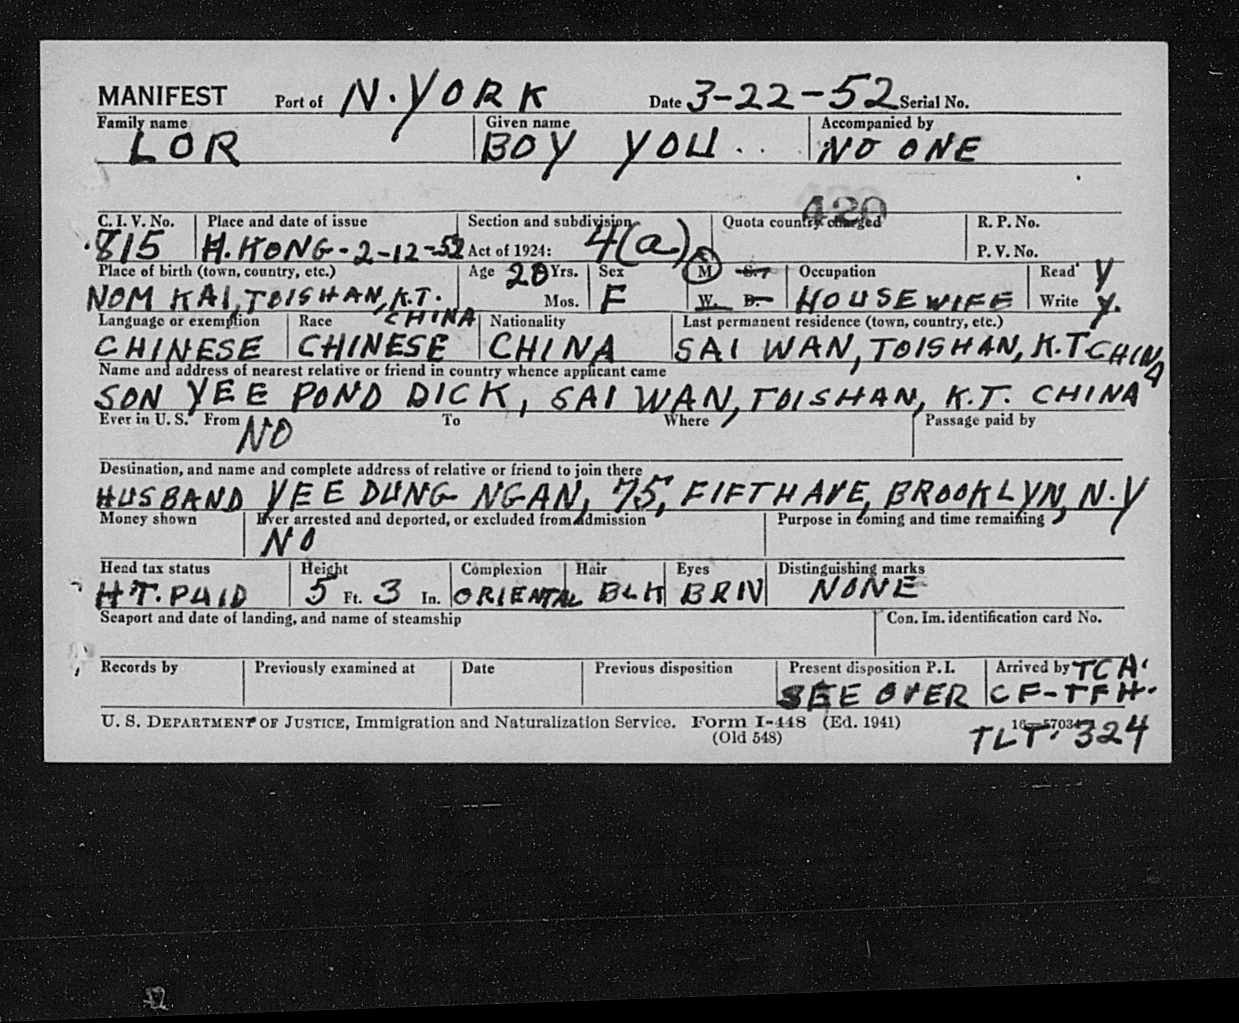 MANIFEST Port of N. YORK Date 3-22-52 Serial No.
Family name Given name Accompanied by
LOR BOY YOU.. NO ONE
420
C. I. V. No. Place and date of issue Section and subdivision Quota country charged R. P. No.
815 H. KONG-2-12-52 Act of 1924: 4(a) P. V. No.
Place of birth (town, country, etc.) Age 20 Yrs. Sex M S. Occupation Read Y
NOM KAI, TOISHAN, K.T. Mos. F W. D. HOUSEWIFE Write Y.
CHINA
Language or exemption Race Nationality Last permanent residence (town, country, etc.)
CHINESE CHINESE CHINA SAI WAN, TOISHAN, K.T CHINA
Name and address of nearest relative or friend in country whence applicant came
SON YEE POND DICK, SAI WAN, TOISHAN, K.T. CHINA
Ever in U. S. From NO To Where Passage paid by
Destination, and name and complete address of relative or friend to join there
HUSBAND YEE DUNG NGAN, 75, FIFTH AVE, BROOKLYN, N.Y
Money shown Ever arrested and deported, or excluded from admission Purpose in coming and time remaining
NO
Head tax status Height Complexion Hair Eyes Distinguishing marks
H.T. PAID 5 Ft. 3 In. ORIENTAL BLK BRN NONE
Seaport and date of landing, and name of steamship Con. Im. identification card No.
Records by Previously examined at Date Previous disposition Present disposition P. I. Arrived by TCA
SEE OVER CF-TFH.
U. S. DEPARTMENT OF JUSTICE, Immigration and Naturalization Service. Form I-448 (Ed. 1941)
(Old 548)
TLT. 324